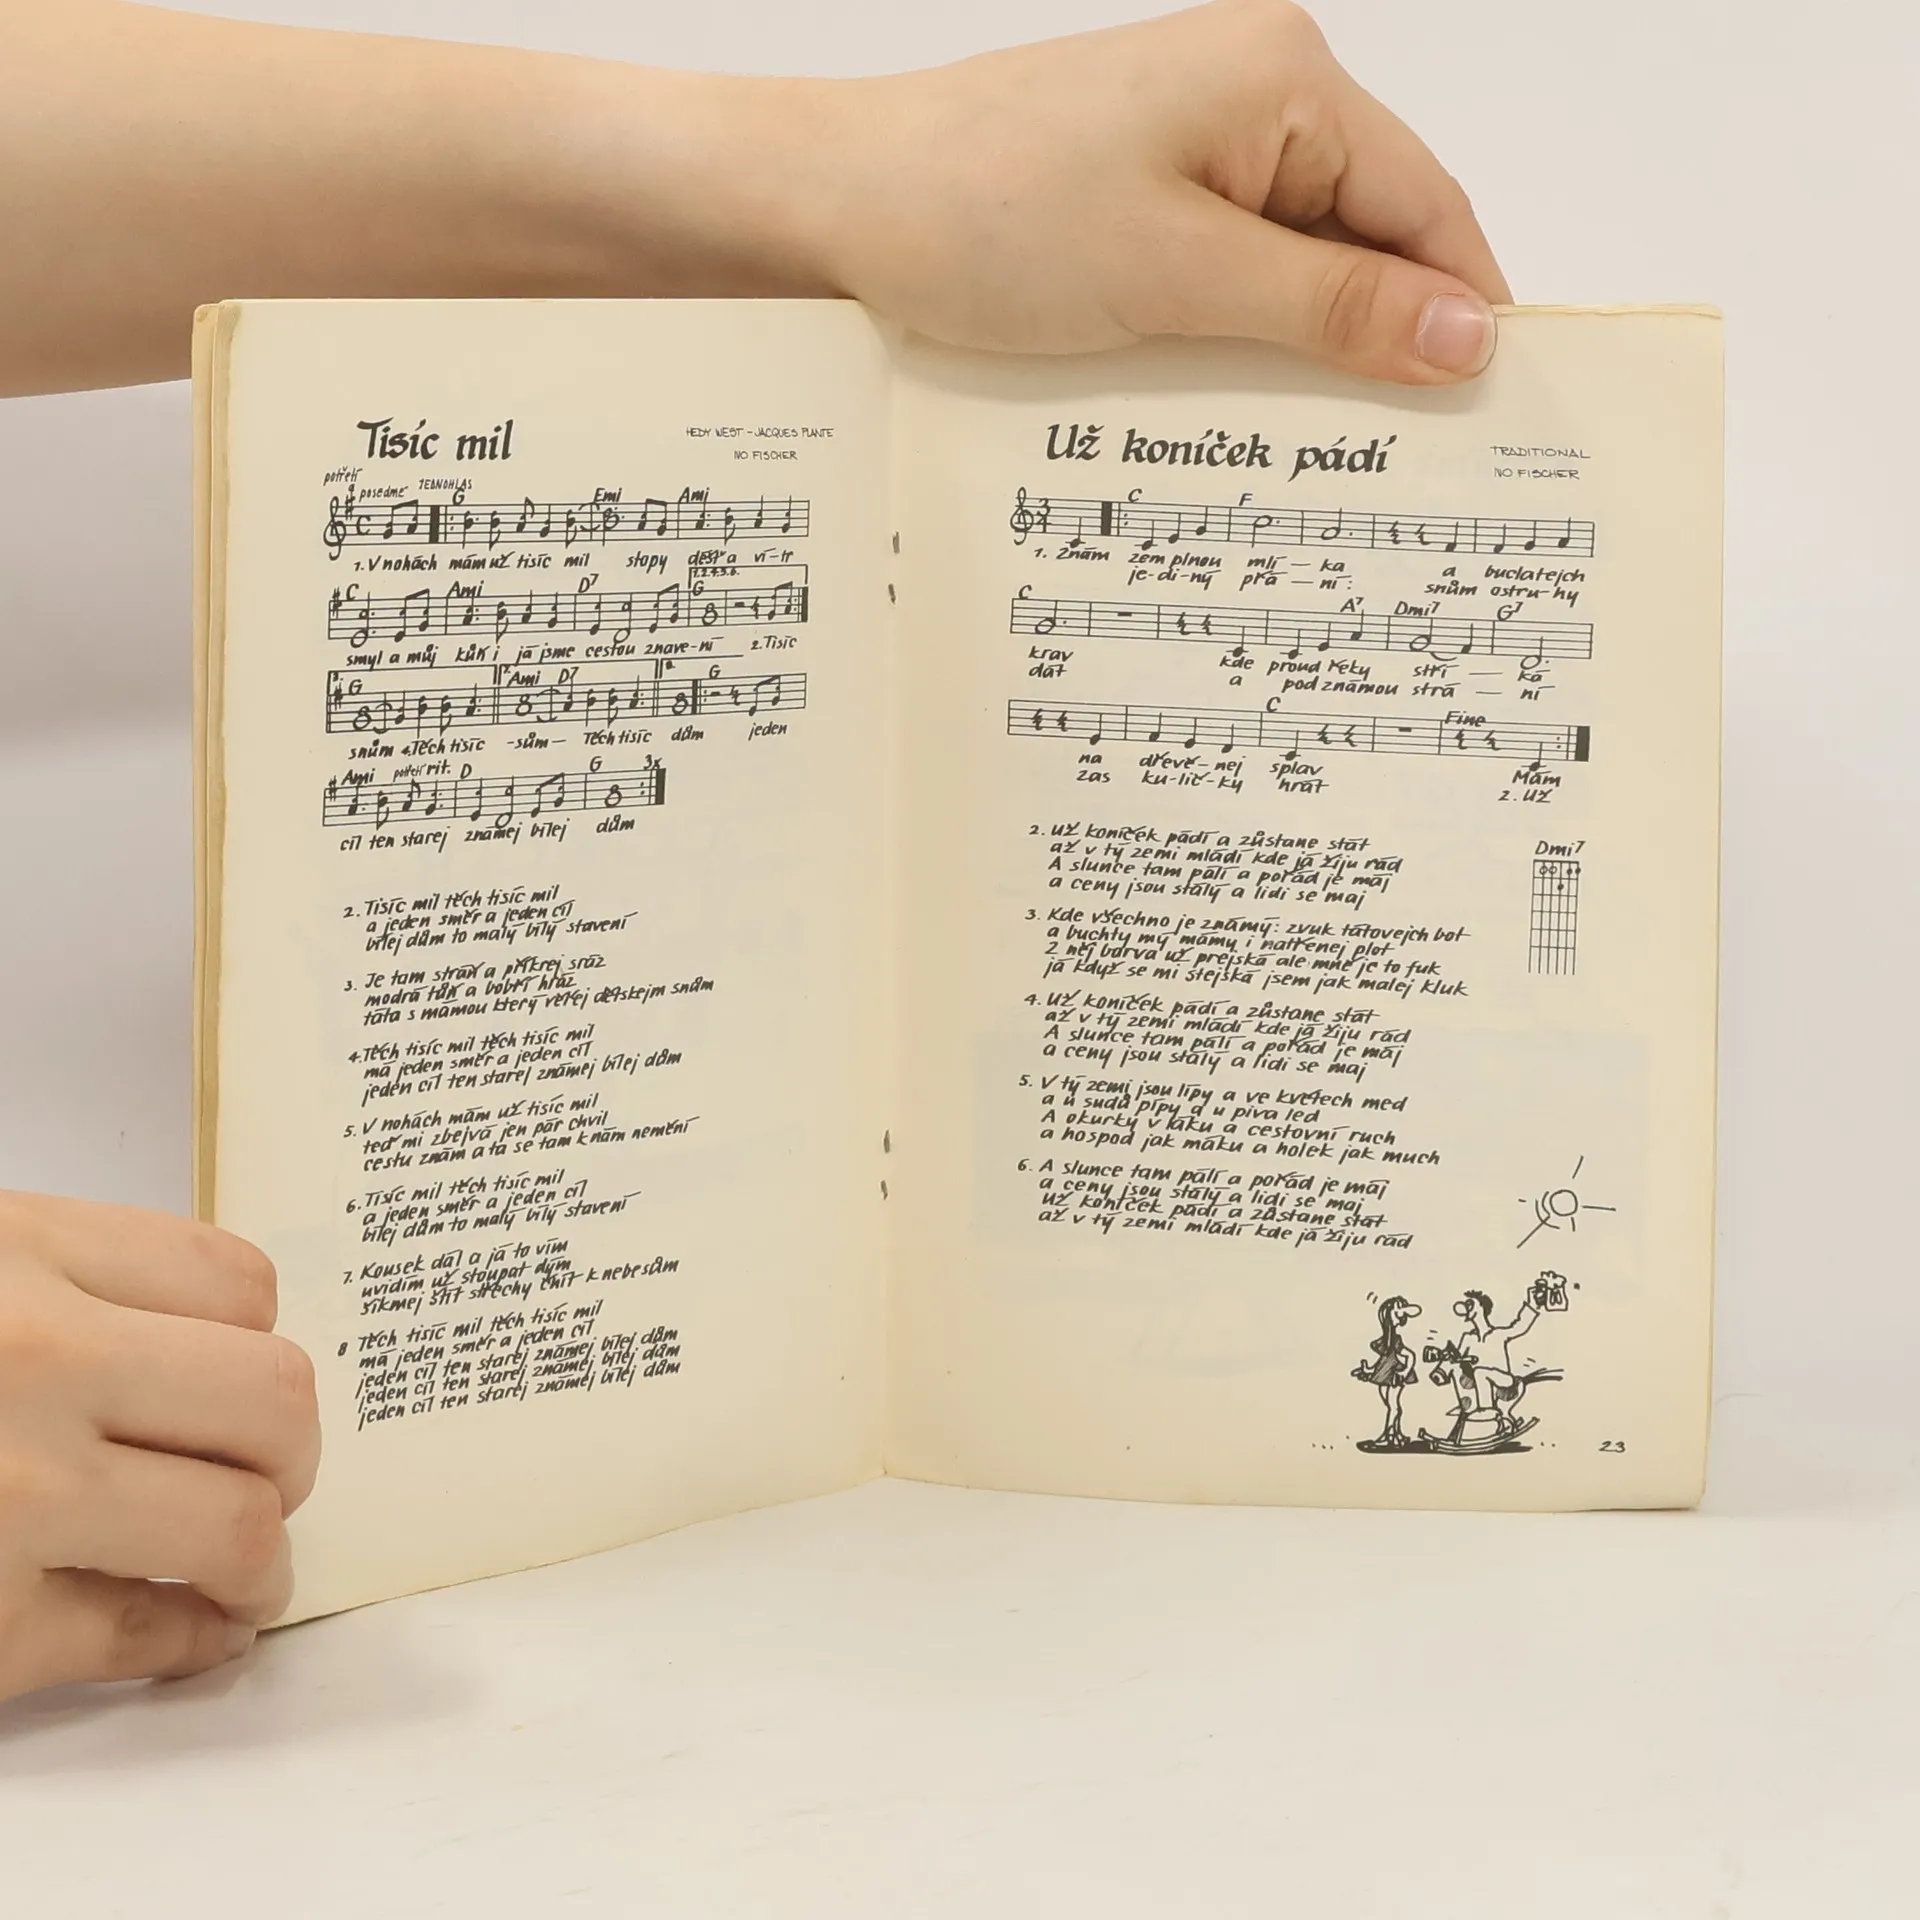 Tisíc mil
HEDY WEST – JACQUES PLANTE
IVO FISCHER
potřetí
posedmé JEDNOHLAS
G Emi Ami
1. V nohách mám už tisíc mil stopy déšť a ví-tr
1.2.4.5.6.
C Ami D7 G
smyl a můj kůň i já jsme cestou znave-ni 2. Tisíc
3. G 7. Ami D7 8. G
snům 4. Těch tisíc -sům- Těch tisíc dům jeden
Ami potřetí rit. D G 3x
cíl ten starej známej bílej dům
2. Tisíc mil těch tisíc mil
a jeden směr a jeden cíl
bílej dům to malý bílý stavení
3. Je tam stráň a příkrej sráz
modrá tůň a bobří hráz
táta s mámou který věřej dětskejm snům
4. Těch tisíc mil těch tisíc mil
má jeden směr a jeden cíl
jeden cíl ten starej známej bílej dům
5. V nohách mám už tisíc mil
teď mi zbejvá jen pár chvil
cestu znám a ta se tam k nám nemění
6. Tisíc mil těch tisíc mil
a jeden směr a jeden cíl
bílej dům to malý bílý stavení
7. Kousek dál a já to vím
uvidím už stoupat dým
šikmej štít střechy čnít k nebesům
8 Těch tisíc mil těch tisíc mil
má jeden směr a jeden cíl
jeden cíl ten starej známej bílej dům
jeden cíl ten starej známej bílej dům
jeden cíl ten starej známej bílej dům
Už koníček pádí
TRADITIONAL
IVO FISCHER
C F
1. Znám zem plnou mlí – ka a buclatejch
je-di-ný přá – ní: snům ostru-hy
C A7 Dmi7 G7
krav kde proud řeky stří – ká
dát a pod známou strá – ní
C Fine
na dřevě-nej splav Mám
zas ku-lič-ky hrát 2. Už
2. Už koníček pádí a zůstane stát
až v tý zemi mládí kde já žiju rád
A slunce tam pálí a pořád je máj
a ceny jsou stálý a lidi se maj
Dmi7
3. Kde všechno je známý: zvuk tátovejch bot
a buchty mý mámy i natřenej plot
Z něj barva už prejská ale mně je to fuk
já když se mi stejská jsem jak malej kluk
4. Už koníček pádí a zůstane stát
až v tý zemi mládí kde já žiju rád
A slunce tam pálí a pořád je máj
a ceny jsou stálý a lidi se maj
5. V tý zemi jsou lípy a ve květech med
a u sudů pípy a u piva led
A okurky v láku a cestovní ruch
a hospod jak máku a holek jak much
6. A slunce tam pálí a pořád je máj
a ceny jsou stálý a lidi se maj
už koníček pádí a zůstane stát
až v tý zemi mládí kde já žiju rád
23